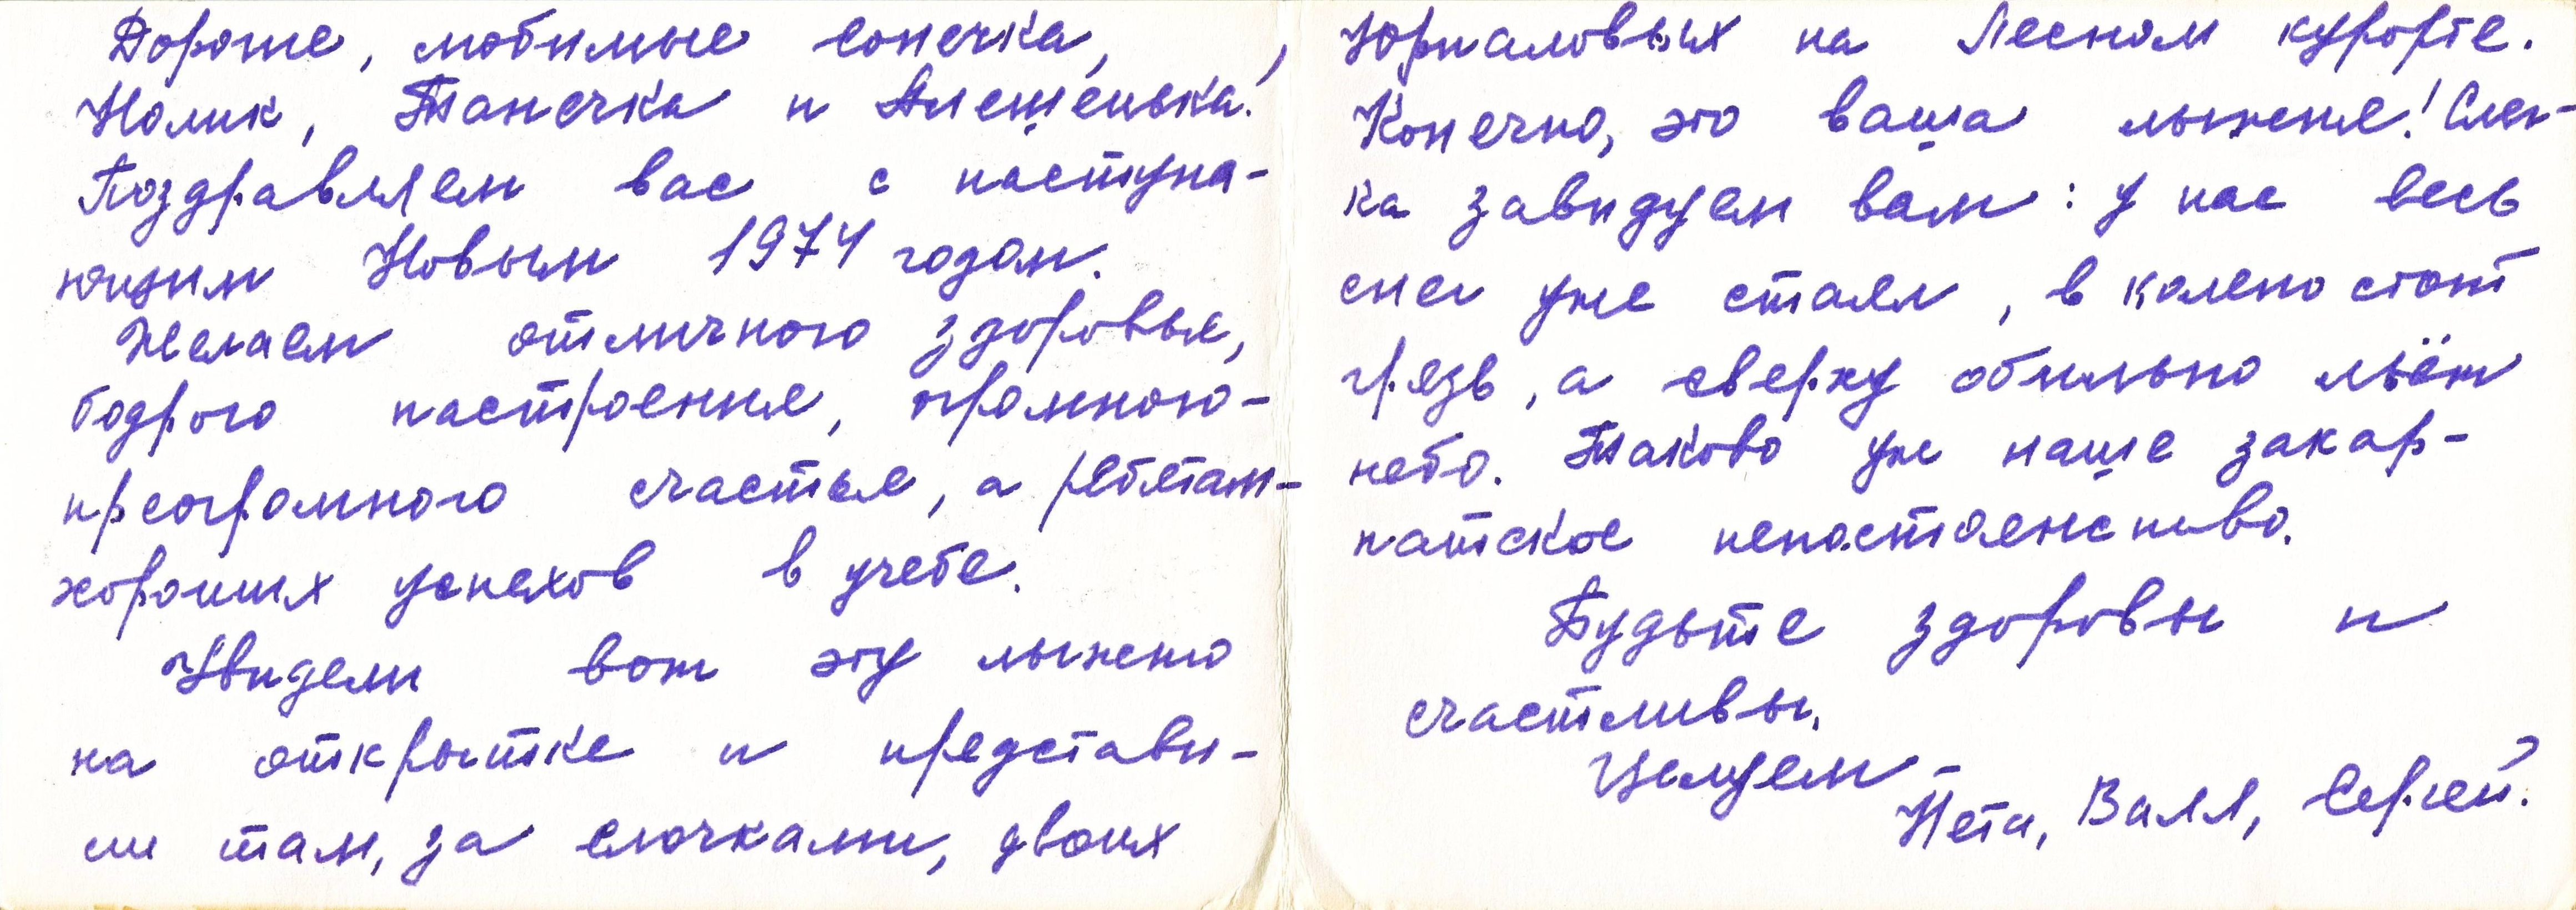 Дорогие, любимые Сонечка,
Нолик, Танечка и Алешенька!
Поздравляем вас с наступа-
ющим Новым 1974 годом.
Желаем отличного здоровья,
бодрого настроения, огромного-
преогромного счастья, а ребятам-
хороших успехов в учебе.
Увидели вот эту лыжню
на открытке и представи-
ли там, за елочками, двоих
на Лесном курорте.
Конечно, это ваша лыжня! Слег-
ка завидуем вам: у нас весь
снег уже стаял, в колено стоит
грязь, а сверху обильно льёт
небо. Таково уж наше закар-
патское непостоянство.
Будьте здоровы и
счастливы.
Целуем -
Валя, Сергей.